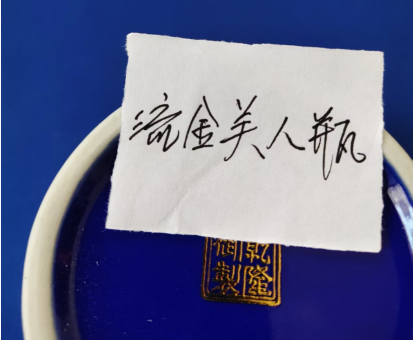 流金美人瓶
乾隆
御製